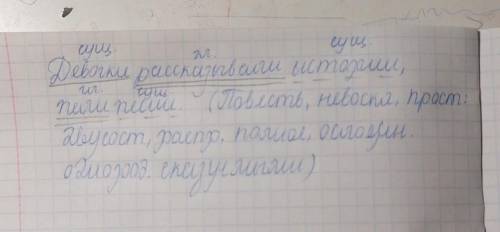 сущ. гл. сущ.
Девочки рассказывали истории,
гл. сущ.
пели песни. (Повеств, невоскл, прост:
двусост, распр. полное, осложнен.
однород. сказуемыми)